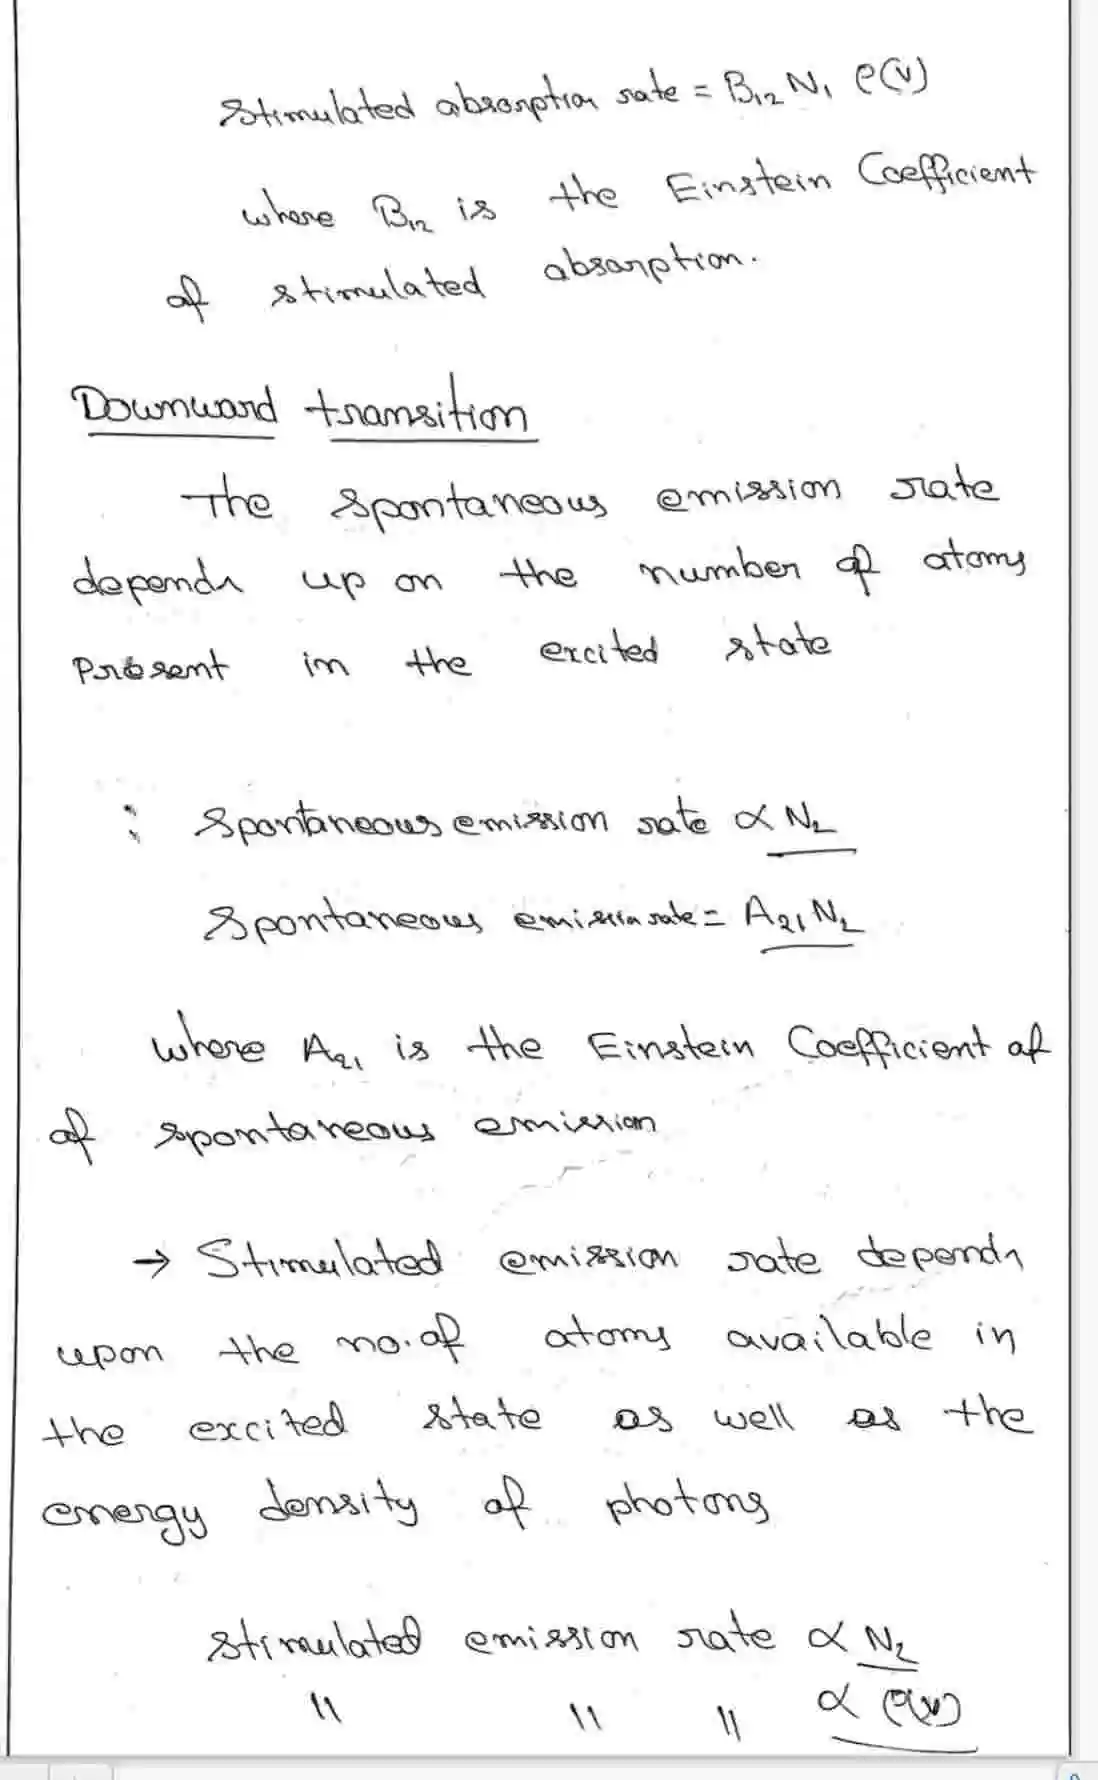 Stimulated absorption rate = B₁₂ N₁ ρ(ν)
where B₁₂ is the Einstein Coefficient
of stimulated absorption.
Downward transition
The spontaneous emission rate
depends up on the number of atoms
Present in the excited state
∴ Spontaneous emission rate ∝ N₂
Spontaneous emission rate = A₂₁ N₂
where A₂₁ is the Einstein Coefficient of
of spontaneous emission
→ Stimulated emission rate depends
upon the no. of atoms available in
the excited state as well as the
energy density of photons
Stimulated emission rate ∝ N₂
" " " ∝ ρ(ν)